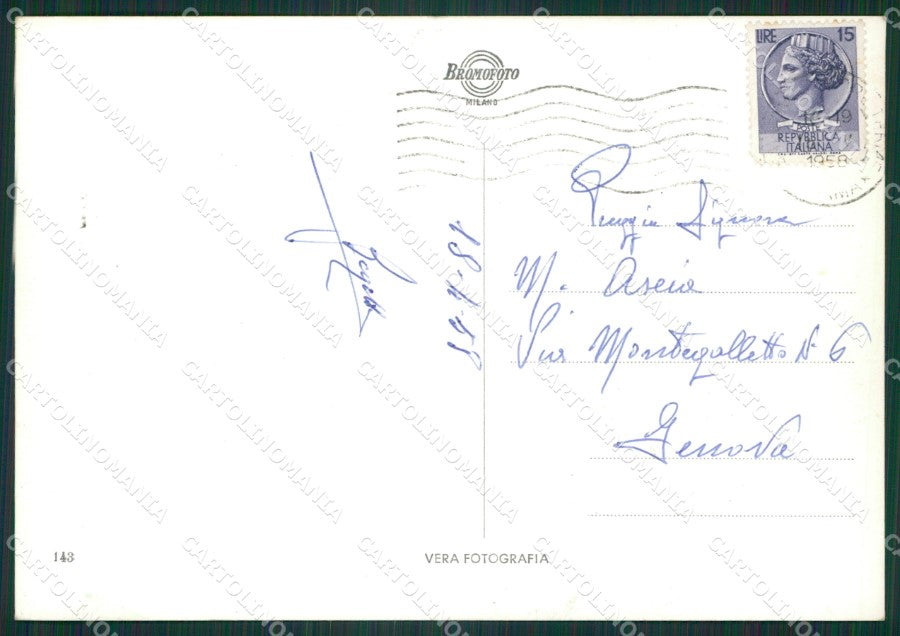 BROMOFOTO
MILANO
LIRE 15
POSTE
REPVBBLICA
ITALIANA
19
1958
18-4-58
Signora
M. Asciα
Via Montegalletto N° 6
Genova
143
VERA FOTOGRAFIA
CARTOLINOMANIA